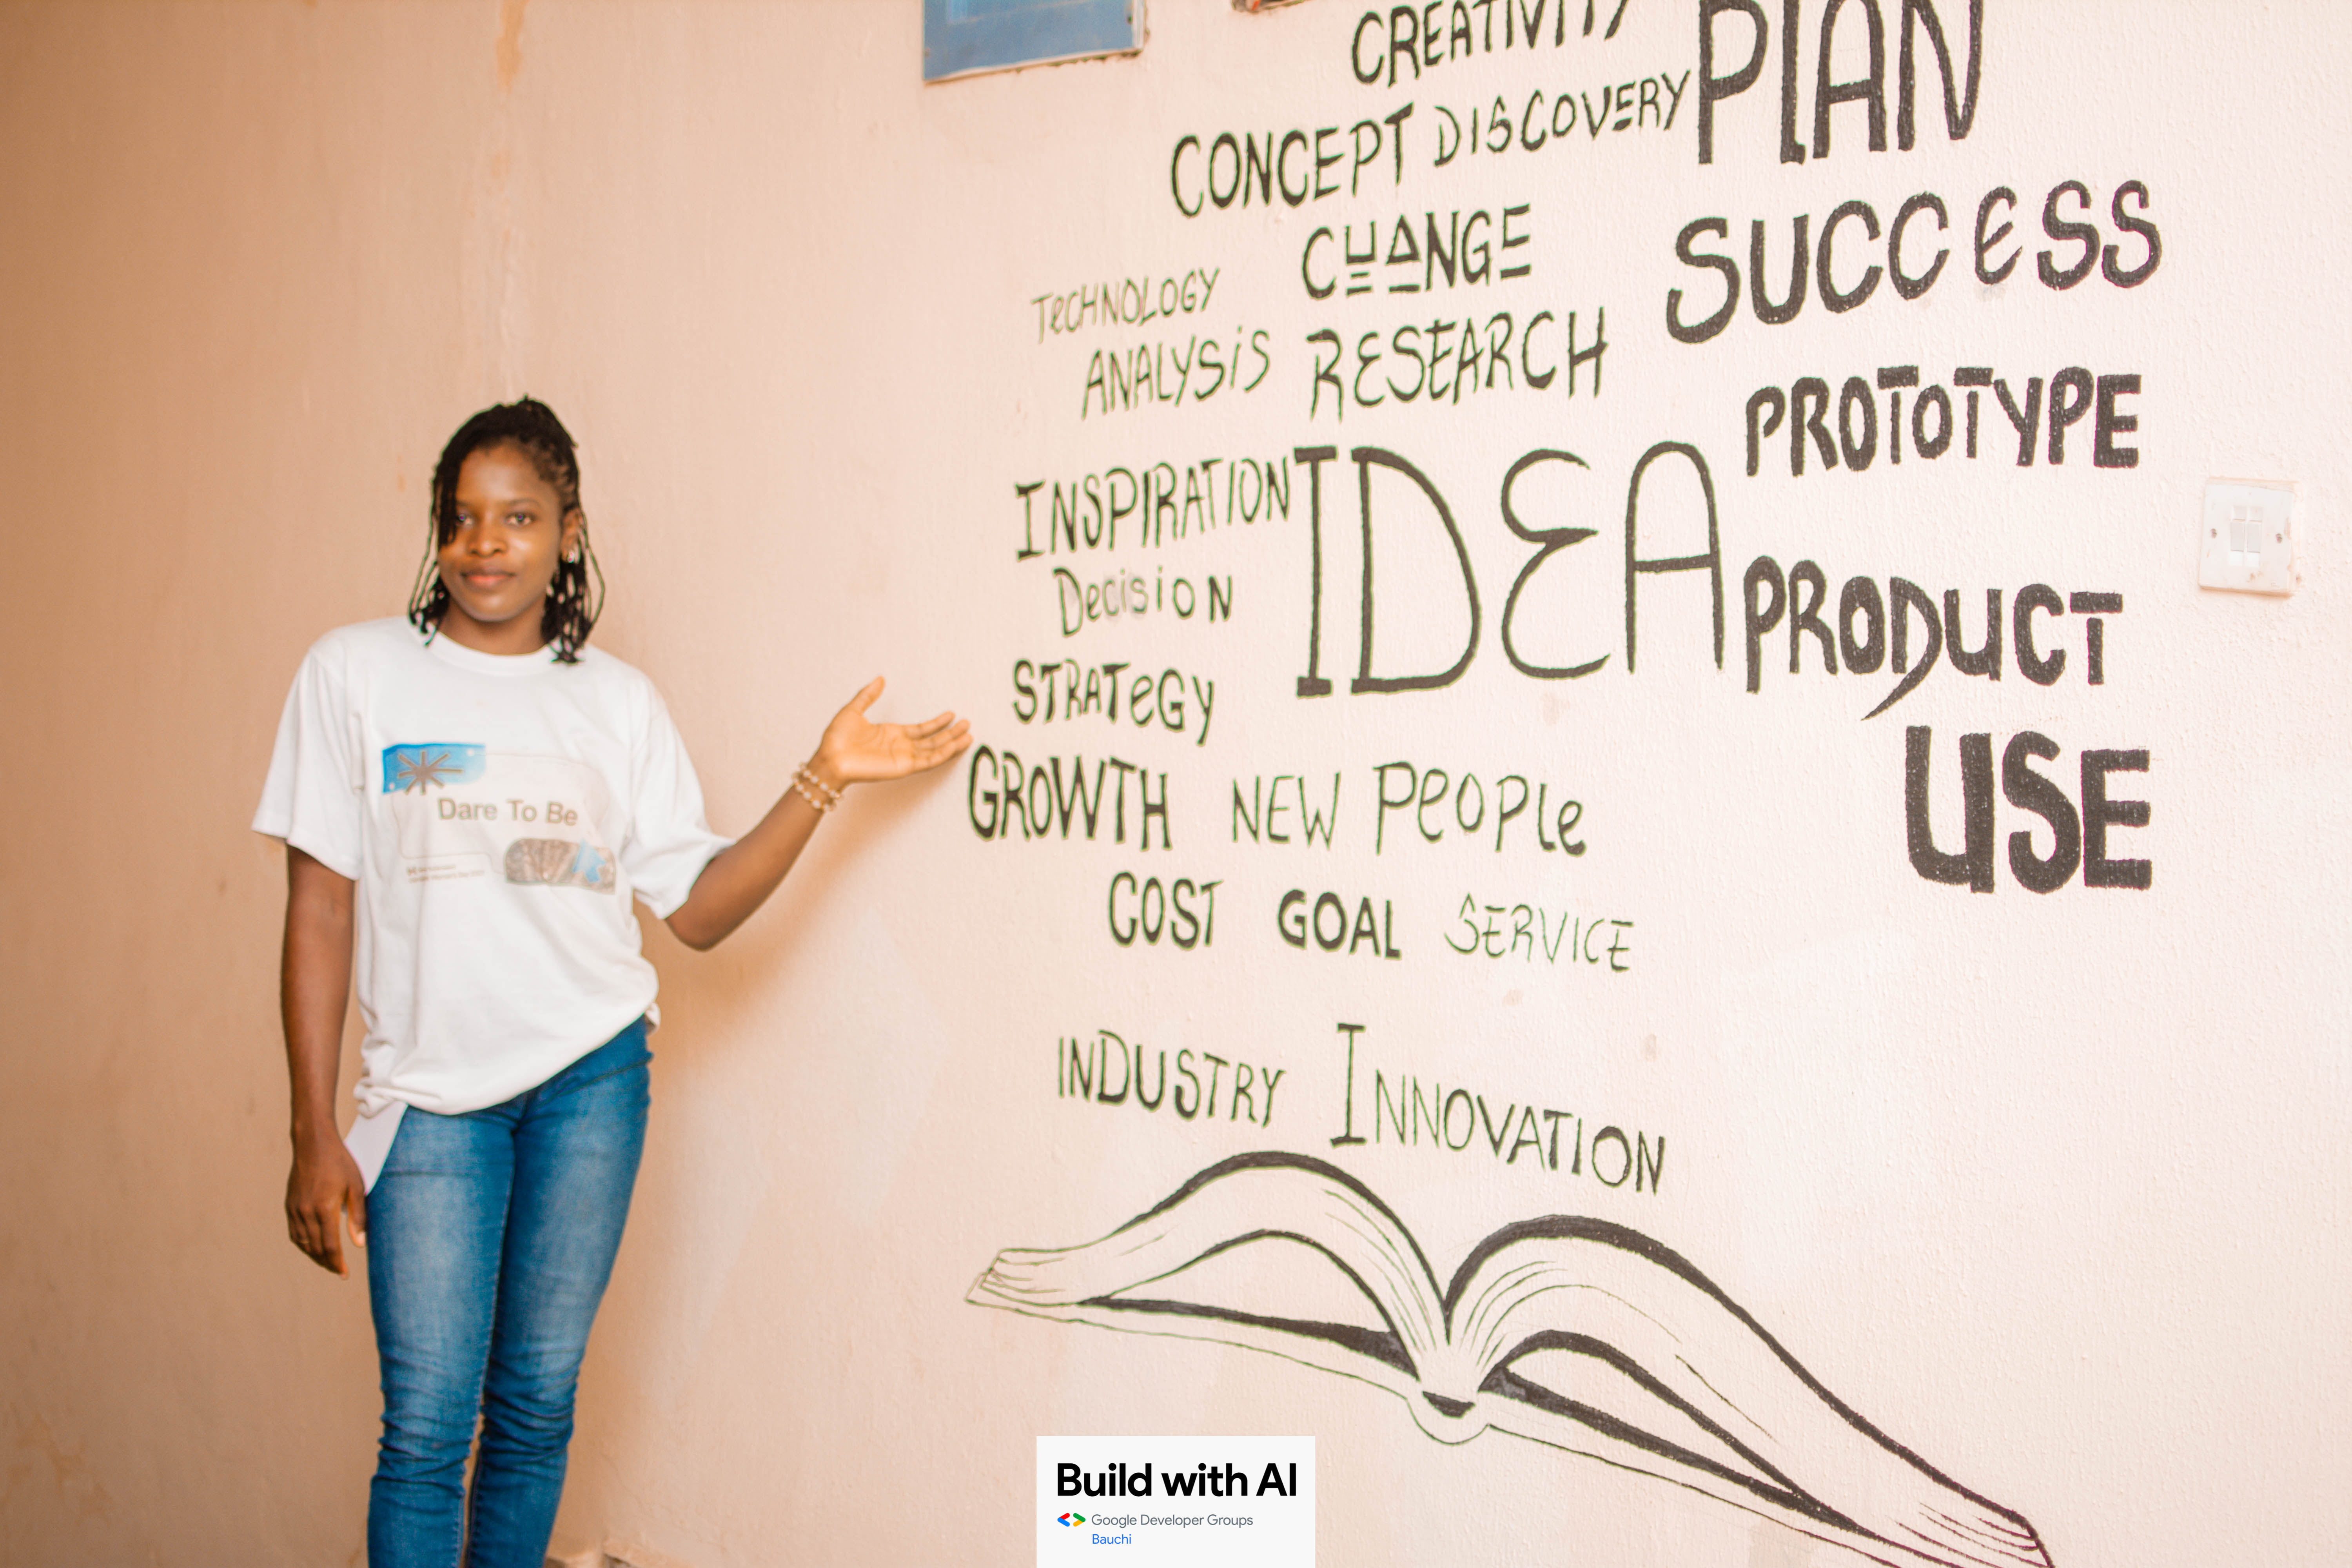 CREATIVITY
PLAN
CONCEPT DISCOVERY
CHANGE
SUCCESS
TECHNOLOGY
ANALYSIS RESEARCH
PROTOTYPE
INSPIRATION IDEA
Decision
PRODUCT
STRATEGY
USE
GROWTH NEW PEOPLE
COST GOAL SERVICE
INDUSTRY INNOVATION
Dare To Be
Build with AI
Google Developer Groups
Bauchi